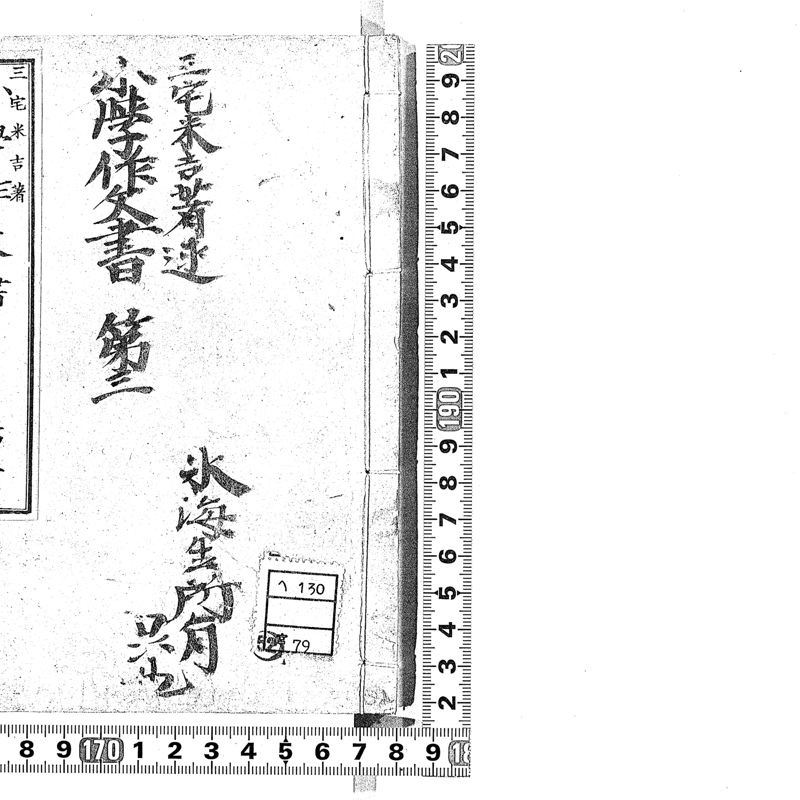 三宅米吉著述
小學作文書 第三
氷海生所有
三宅米吉著
ヘ 130
79
20
9
8
7
6
5
4
3
2
1
190
9
8
7
6
5
4
3
2
8
9
170
1
2
3
4
5
6
7
8
9
18